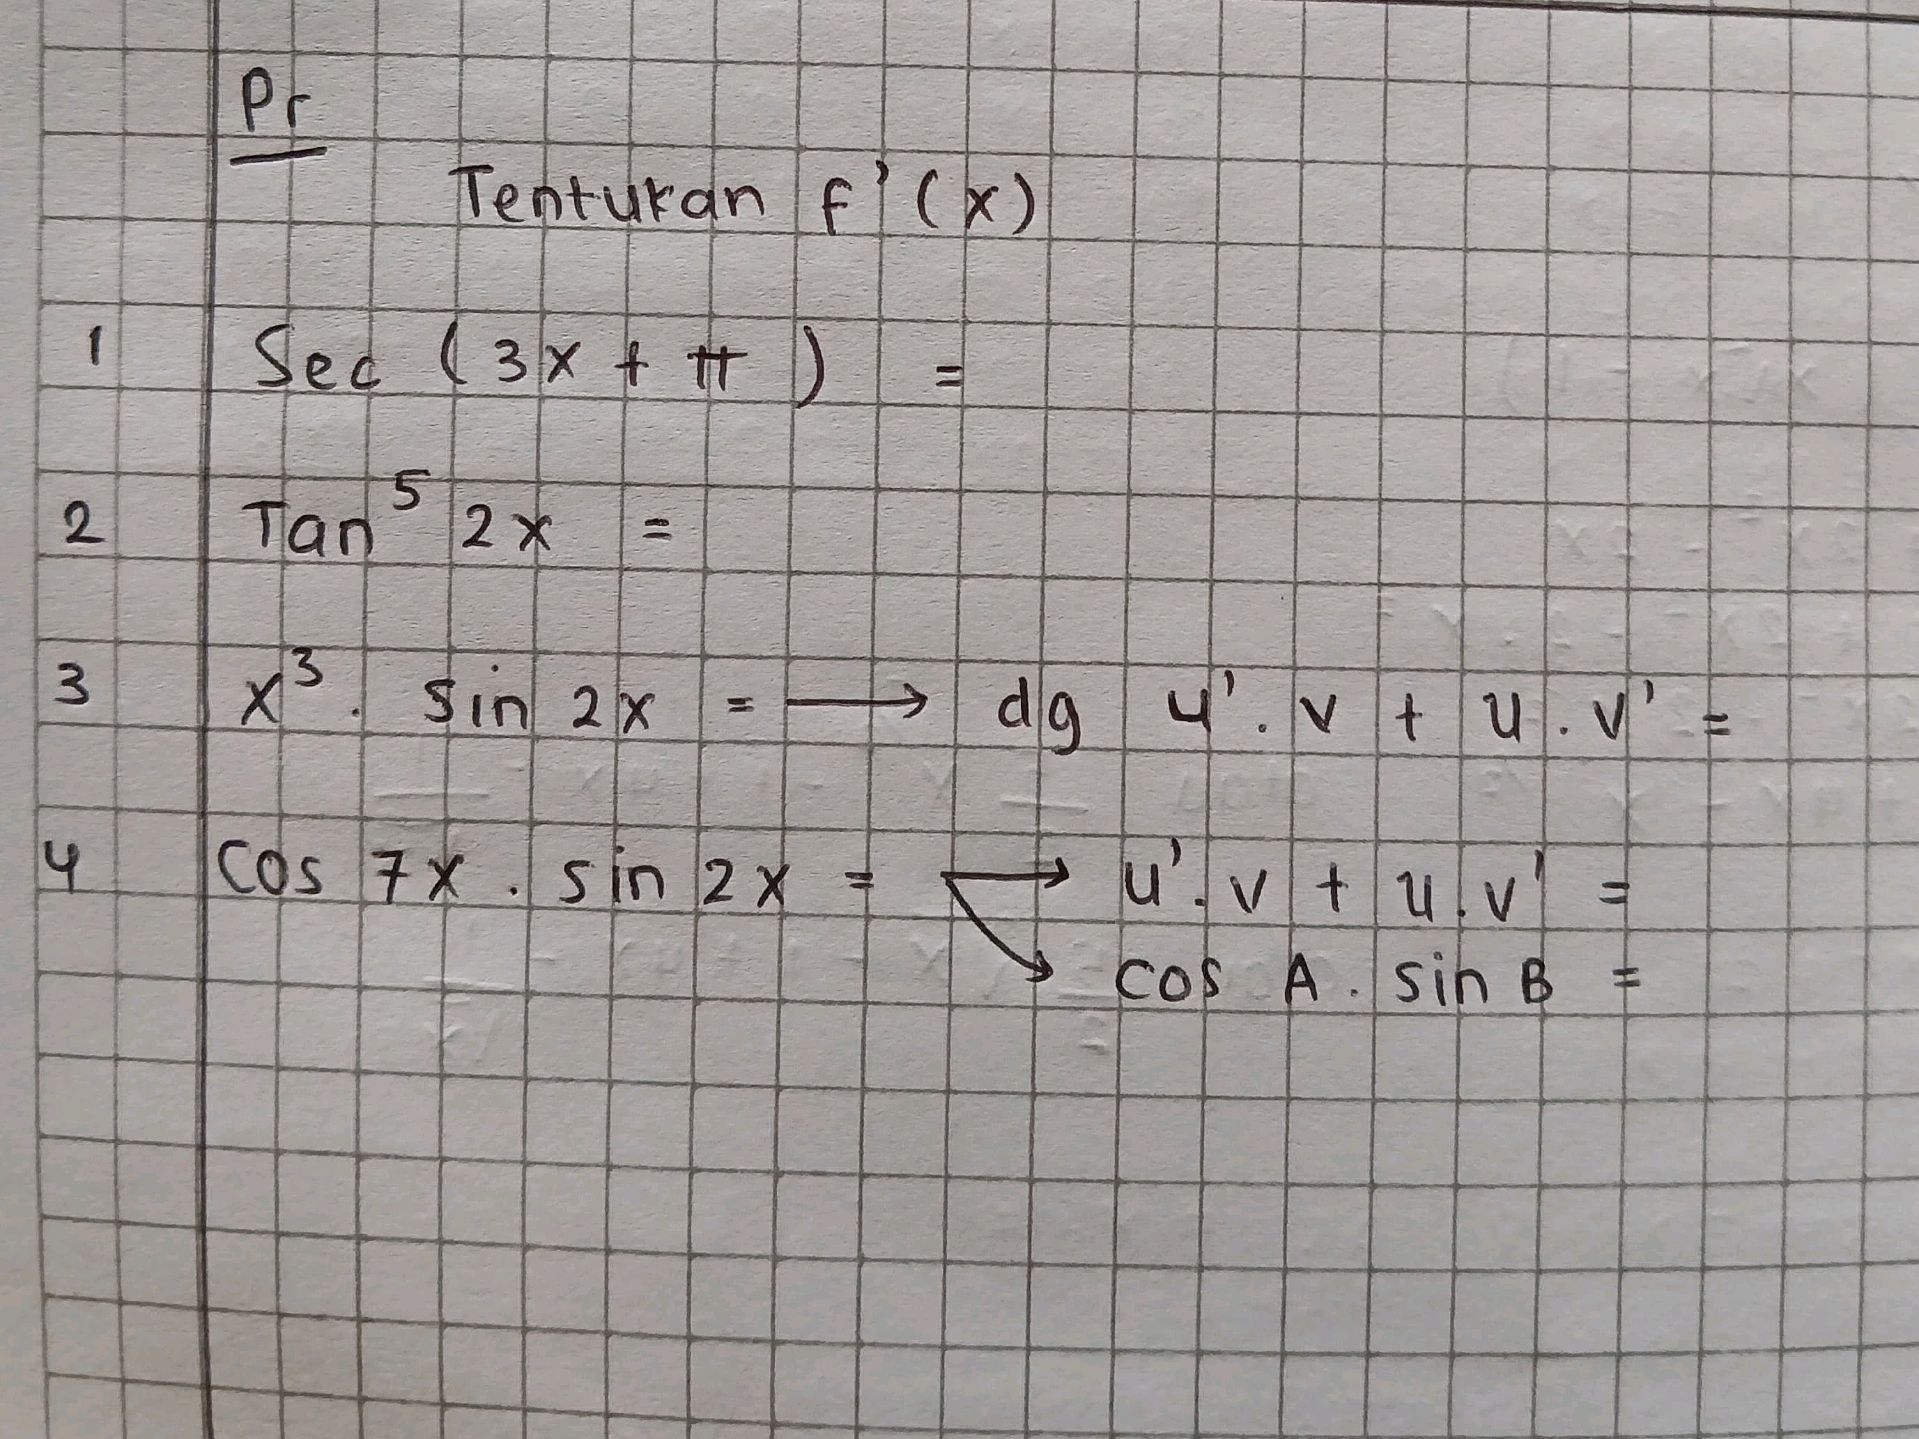 Pr
Tentukan f'(x)
1 Sec (3x + π) =
2 Tan⁵ 2x =
3 x³ . sin 2x = → dg u'. v + u . v' =
4 Cos 7x . sin 2x = → u'. v + u . v' =
↘ cos A . sin B =